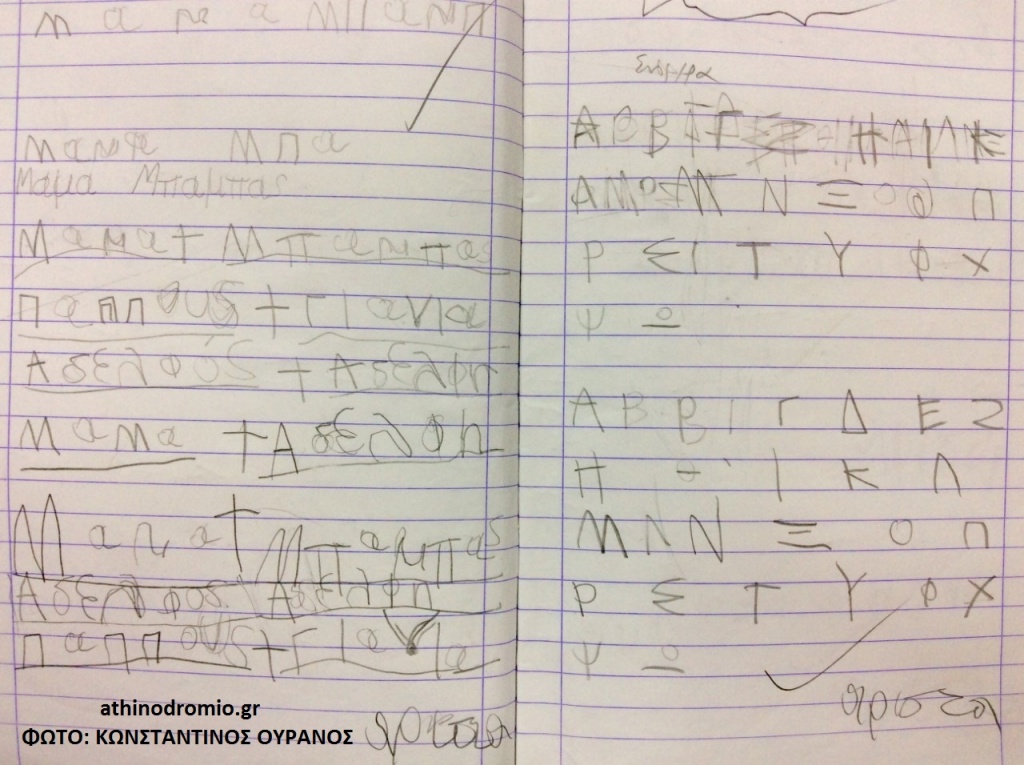 μαμα Μπαμπ
μαμα Μπα
Μαμα Μπαμπας
Μαμα + Μπαμπας
παππους + Γιαγια
Αδελφός + Αδελφη
Μαμα + Αδελφη
Μαμα + Μπαμπας
Αδελφος Αδελφη
παππους + Γιαγια
άριστα
athinodromio.gr
ΦΩΤΟ: ΚΩΝΣΤΑΝΤΙΝΟΣ ΟΥΡΑΝΟΣ
Α Β Β Γ
Ν Ξ Ο Π
Ρ Σ Ι Τ Υ Φ Χ
Ψ Ω
Α Β Β Ι Γ Δ Ε Ζ
Η Θ Ι Κ Λ
Μ Ν Ξ Ο Π
Ρ Σ Τ Υ Φ Χ
Ψ Ω
άριστα